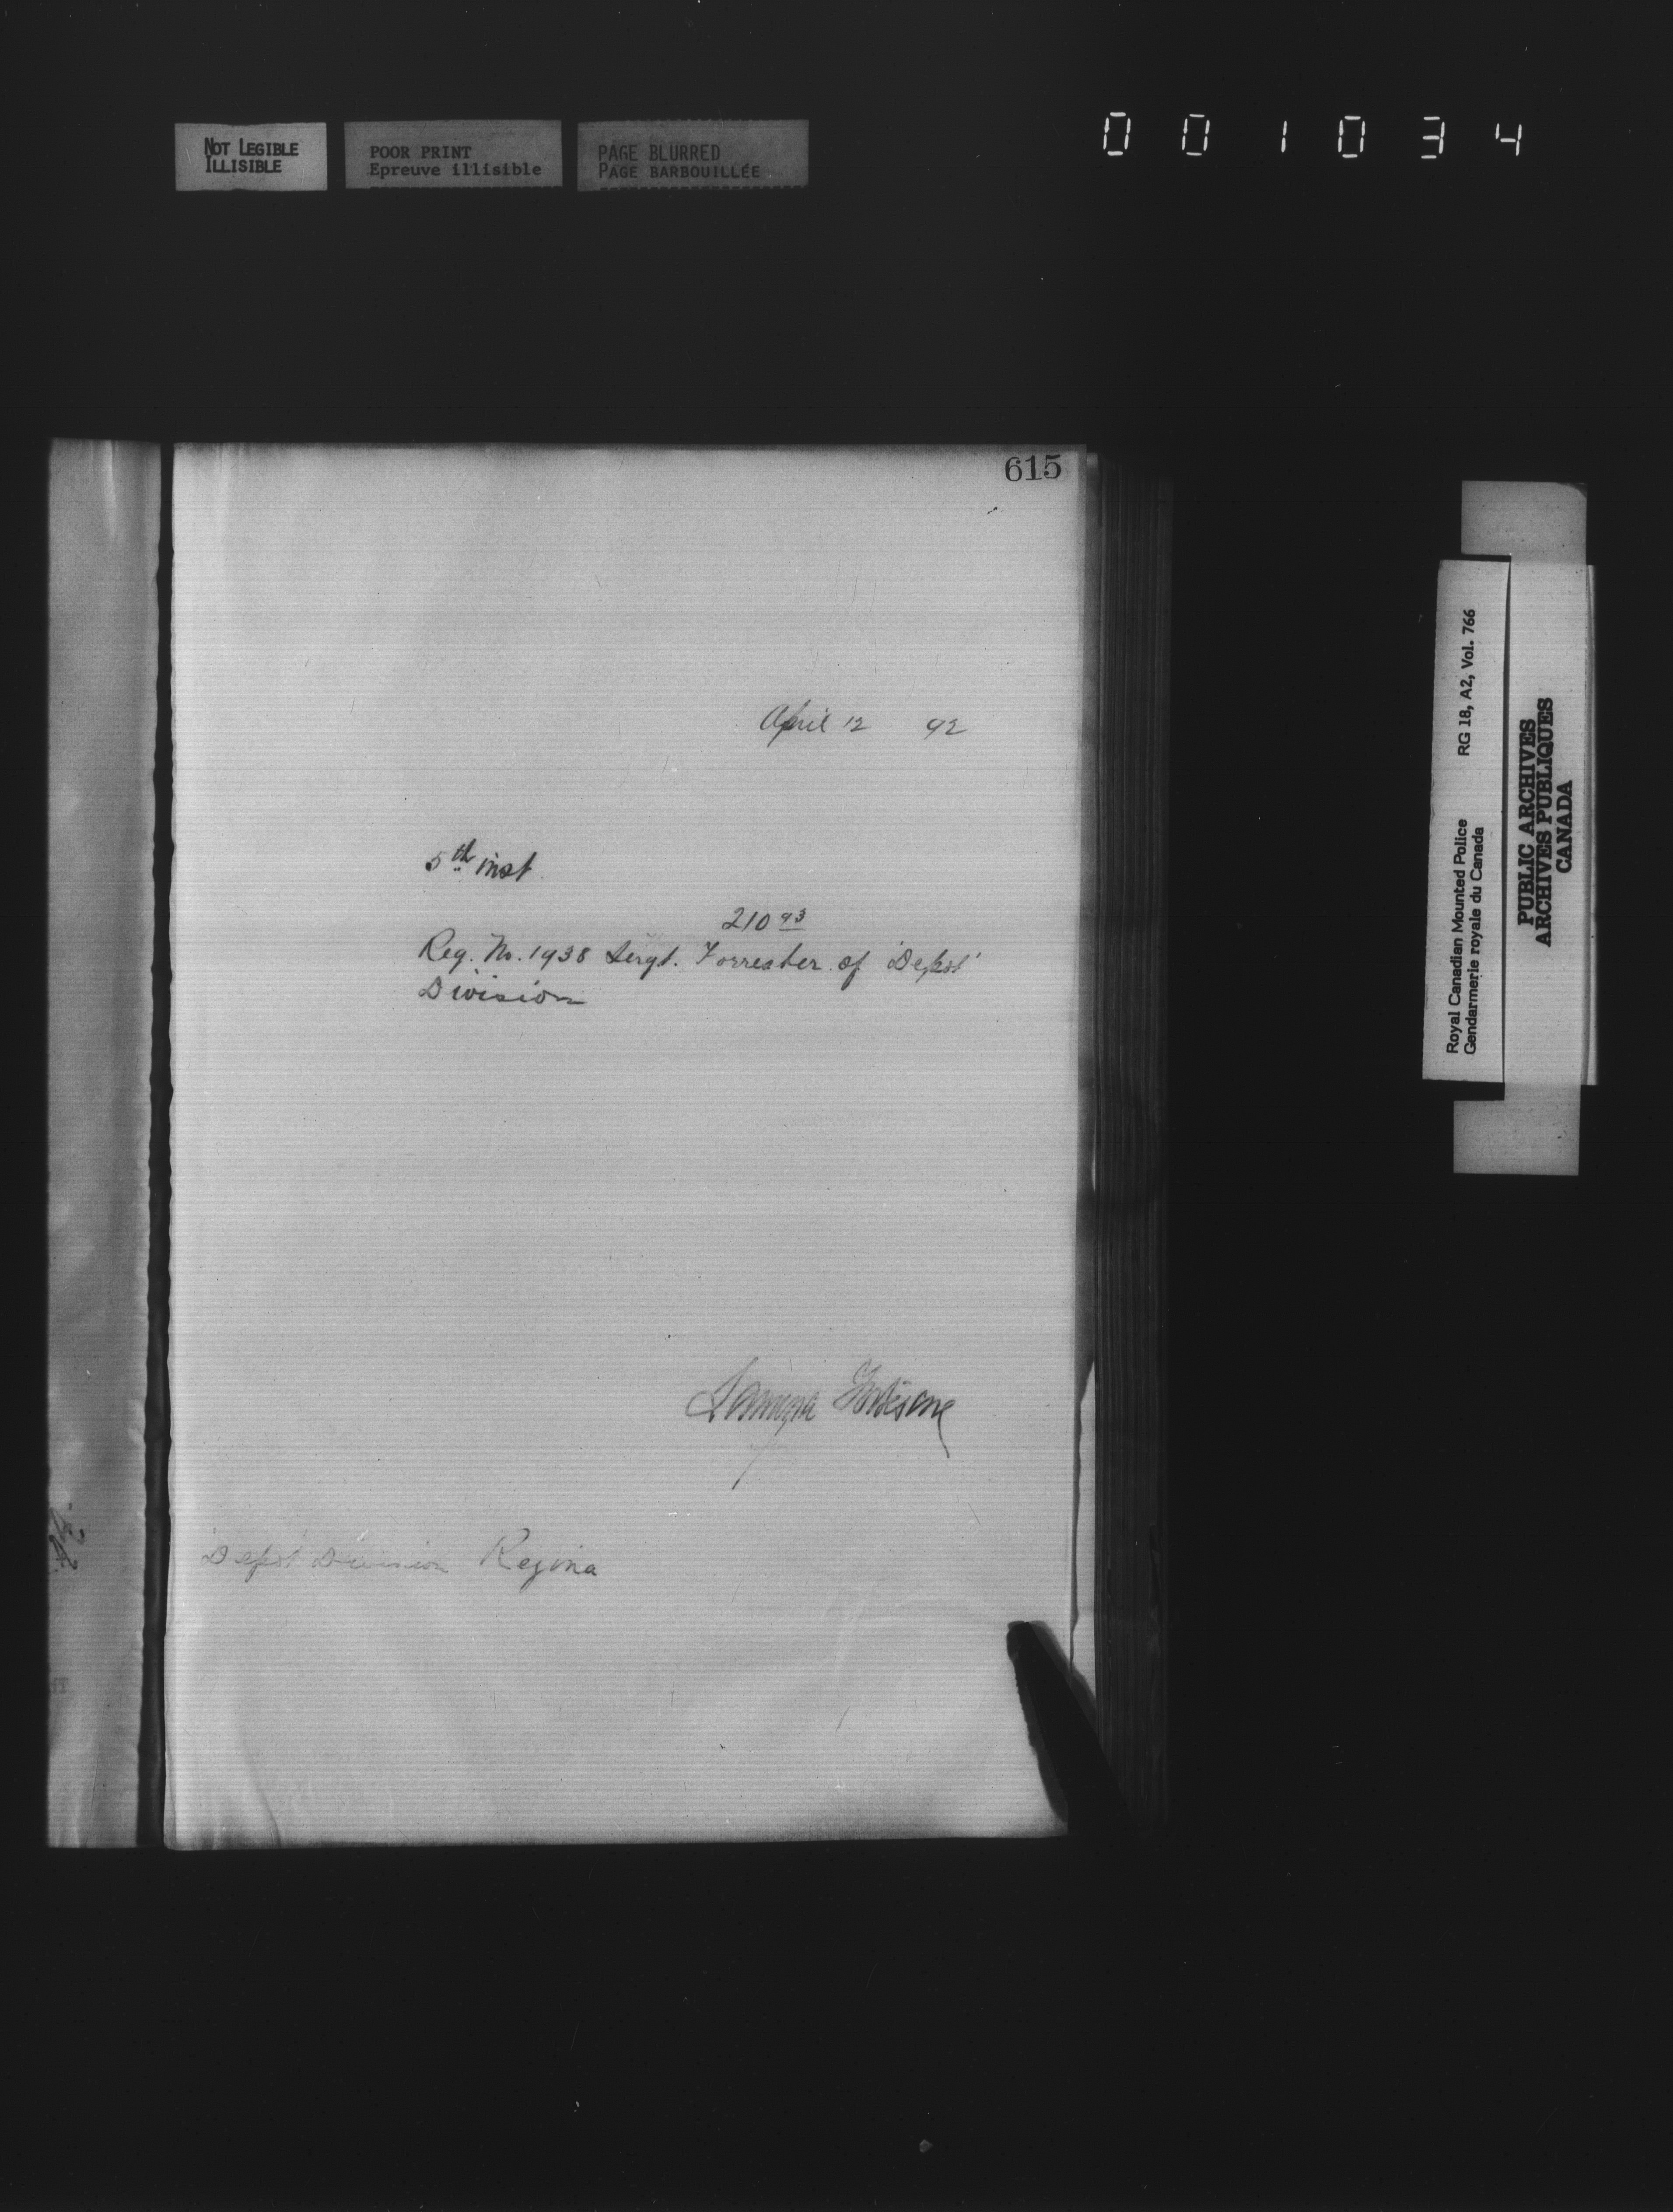 NOT LEGIBLE
ILLISIBLE
POOR PRINT
Epreuve illisible
PAGE BLURRED
PAGE BARBOUILLÉE
001034
615
April 12 92
5th inst.
210 93
Reg. No. 1938 Sergt. Forrester of 'Depot'
Division
Fortescue
'Depot' Division Regina
Royal Canadian Mounted Police RG 18, A2, Vol. 766
Gendarmerie royale du Canada
PUBLIC ARCHIVES
ARCHIVES PUBLIQUES
CANADA